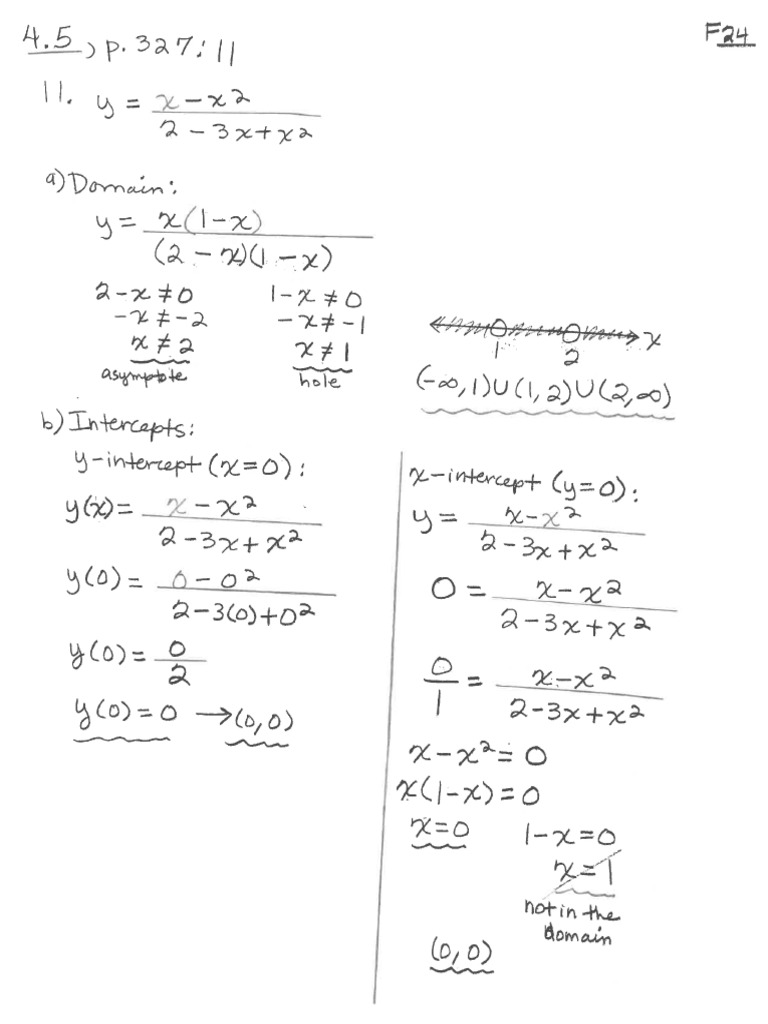 4.5, p. 327: 11
F24
11. y = (x - x²)/(2 - 3x + x²)
a) Domain:
y = x(1-x)/((2-x)(1-x))
2-x ≠ 0
-x ≠ -2
x ≠ 2
asymptote
1-x ≠ 0
-x ≠ -1
x ≠ 1
hole
1 2 x
(-∞,1)∪(1,2)∪(2,∞)
b) Intercepts:
y-intercept (x=0):
y(x) = (x - x²)/(2 - 3x + x²)
y(0) = (0 - 0²)/(2 - 3(0) + 0²)
y(0) = 0/2
y(0) = 0 → (0,0)
x-intercept (y=0):
y = (x - x²)/(2 - 3x + x²)
0 = (x - x²)/(2 - 3x + x²)
0/1 = (x - x²)/(2 - 3x + x²)
x - x² = 0
x(1-x) = 0
x=0
1-x=0
x=1
not in the
domain
(0,0)